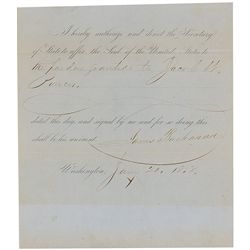 I hereby authorize and direct the Secretary
of State to affix the Seal of the United States to
the pardon granted to Jacob
dated this day, and signed by me and for so doing this
shall be his warrant.
James Buchanan
Washington,